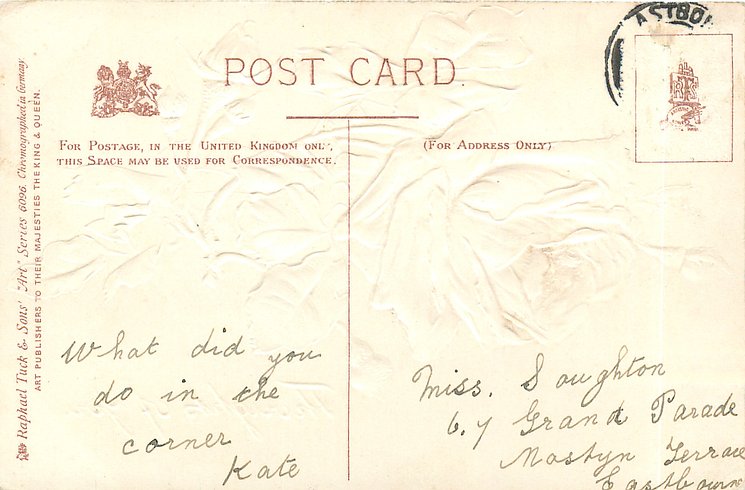 ASTBO
POST CARD.
FOR POSTAGE, IN THE UNITED KINGDOM ONLY,
THIS SPACE MAY BE USED FOR CORRESPONDENCE.
(FOR ADDRESS ONLY)
Raphael Tuck & Sons' "Art" Series 6096. Chromographed in Germany
ART PUBLISHERS TO THEIR MAJESTIES THE KING & QUEEN.
What did you
do in the
corner
Kate
Miss. Soughton
6.7 Grand Parade
Mostyn Terrace
Eastbourn